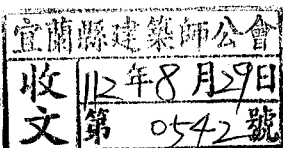 宜蘭縣建築師公會
收文 112年8月29日
第 0542 號